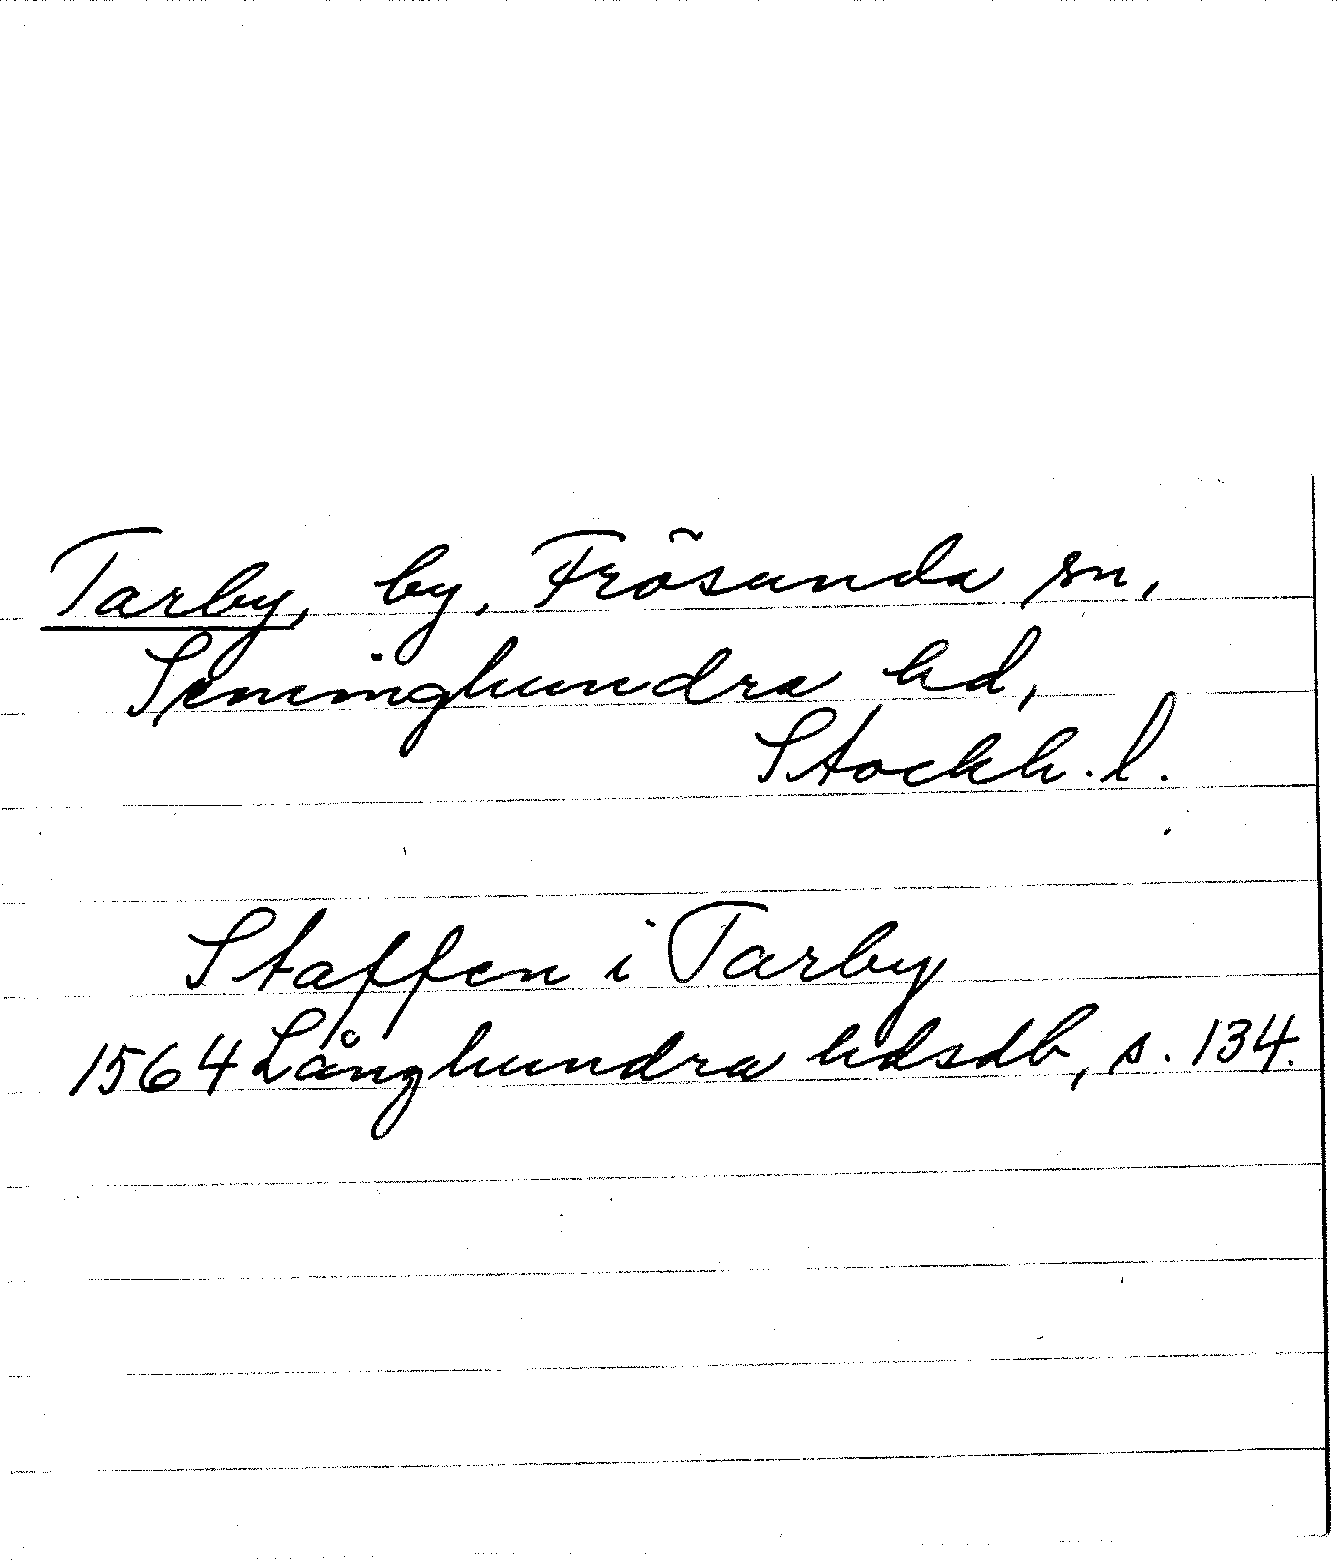 Tarby, by, Frösunda sn,
Seminghundra hd,
Stockh. l.
Staffen i Tarby
1564 Långhundra hdsdb, s. 134.